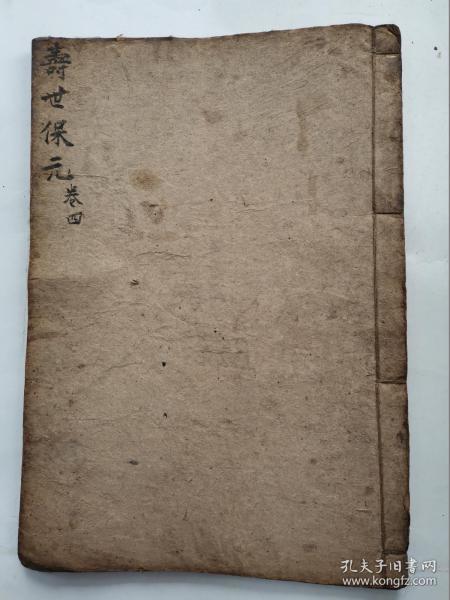 壽世保元
卷四
孔夫子旧书网
www.kongfz.com